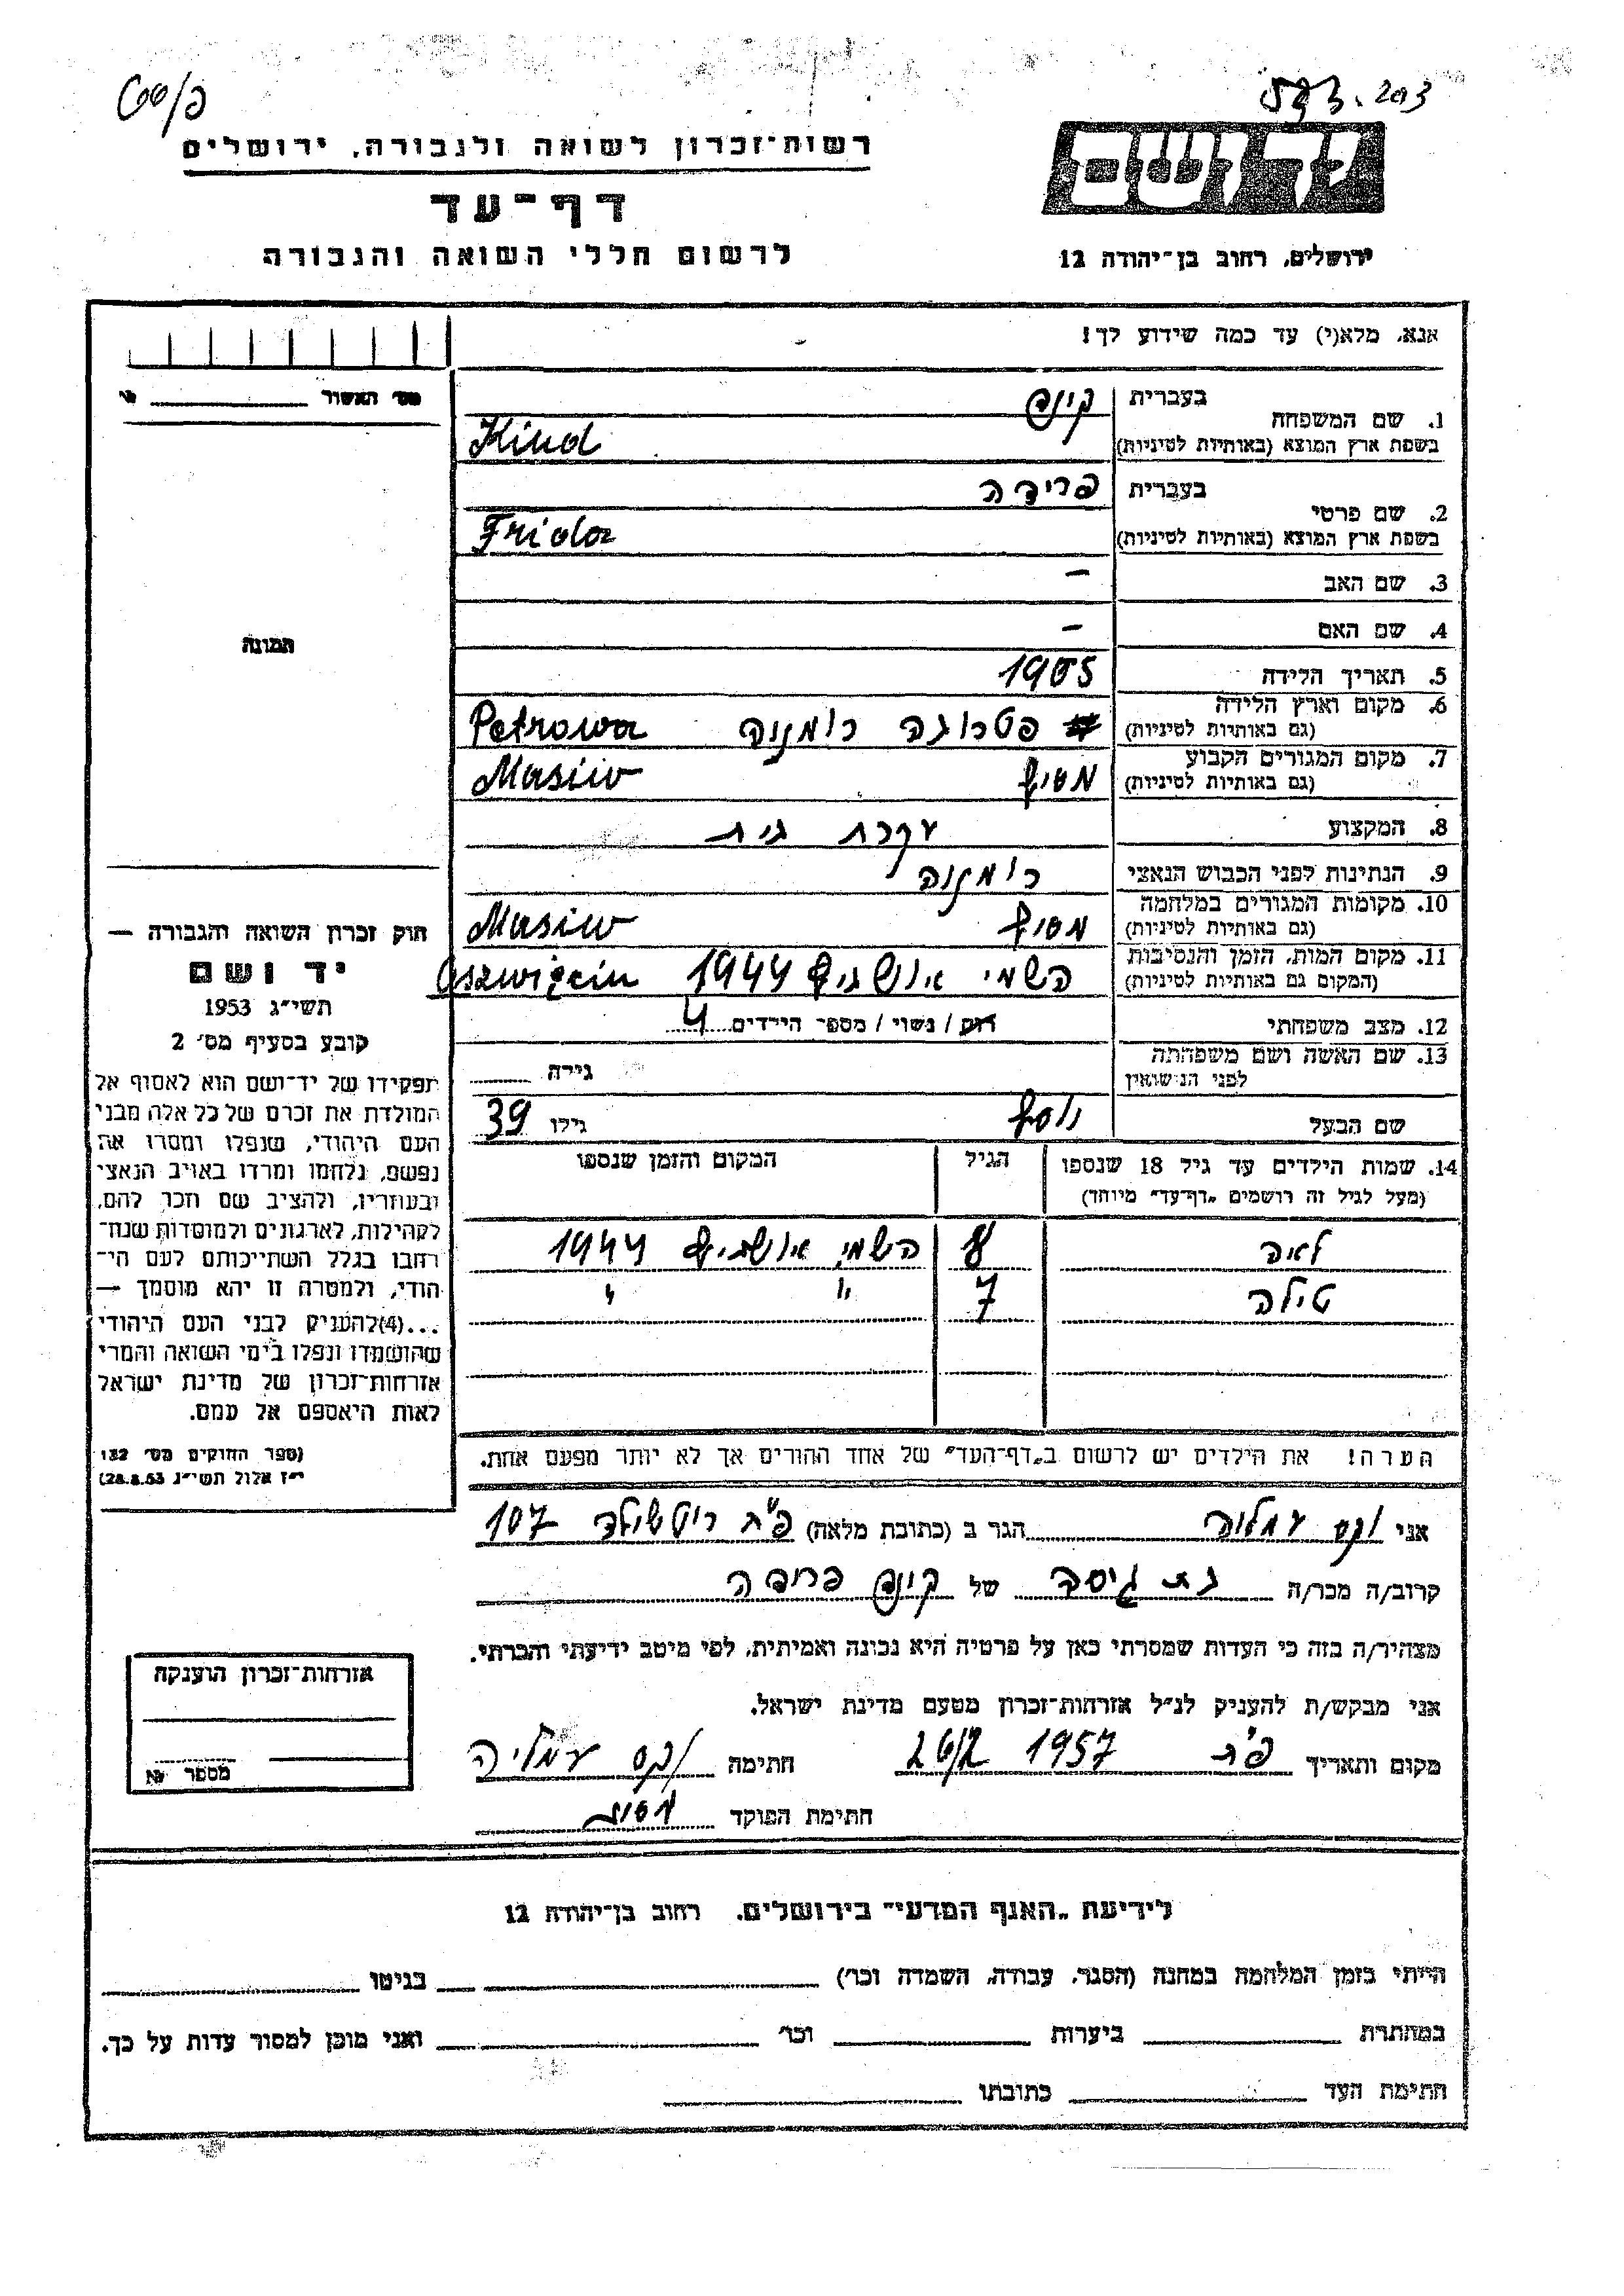 רשות־זכרון לשואה ולגבורה, ירושלים
דף־עד
לרשום חללי השואה והגבורה
ירושלים, רחוב בן־יהודה 12
אנא, מלא(י) עד כמה שידוע לך!
מס' האשור
בעברית קינד
1. שם המשפחה
בשפת ארץ המוצא (באותיות לטיניות) Kind
בעברית פרידה
2. שם פרטי
בשפת ארץ המוצא (באותיות לטיניות) Frida
3. שם האב —
4. שם האם —
5. תאריך הלידה 1905
6. מקום וארץ הלידה
(גם באותיות לטיניות) פטרובה רומניה Petrowa
7. מקום המגורים הקבוע
(גם באותיות לטיניות) מסיף Masiw
8. המקצוע עקרת בית
9. הנתינות לפני הכבוש הנאצי רומניה
10. מקומות המגורים במלחמה
(גם באותיות לטיניות) מסיף Masiw
11. מקום המות, הזמן והנסיבות
(המקום גם באותיות לטיניות) השמי אושביץ 1944 Oszwigein
12. מצב משפחתי רוק / נשוי / מספר הילדים 4
13. שם האשה ושם משפחתה
לפני הנישואין גילה
שם הבעל יוסף גילו 39
14. שמות הילדים עד גיל 18 שנספו
(מעל לגיל זה רושמים „דף־עד" מיוחד)
הגיל
המקום והזמן שנספו
לאה 8 השמי אושביץ 1944
טילה 7 " "
הערה! את הילדים יש לרשום ב„דף־העד" של אחד ההורים אך לא יותר מפעם אחת.
תמונה
חוק זכרון השואה והגבורה —
יד ושם
תשי"ג 1953
קובע בסעיף מס' 2
תפקידו של יד־ושם הוא לאסוף אל
המולדת את זכרם של כל אלה מבני
העם היהודי, שנפלו ומסרו את
נפשם, נלחמו ומרדו באויב הנאצי
ובעוזריו, ולהציב שם וזכר להם,
לקהילות, לארגונים ולמוסדות שנח־
רבו בגלל השתייכותם לעם הי־
הודי, ולמטרה זו יהא מוסמך —
...(4) להעניק לבני העם היהודי
שהושמדו ונפלו בימי השואה והמרי
אזרחות־זכרון של מדינת ישראל
לאות היאספם אל עמם.
(ספר החוקים מס' 132
י"ז אלול תשי"ג 28.8.53)
אני וקס עמליה הגר ב (כתובת מלאה) פ"ת רוטשילד 107
קרוב/ה מכר/ה בת גיסה של קינד פרידה
מצהיר/ה בזה כי העדות שמסרתי כאן על פרטיה היא נכונה ואמיתית, לפי מיטב ידיעתי והכרתי.
אני מבקש/ת להעניק לנ"ל אזרחות־זכרון מטעם מדינת ישראל.
מקום ותאריך פ"ת 1957 חתימה וקס עמליה
חתימת הפוקד
אזרחות־זכרון הוענקה
מספר №
לידיעת „האגף המדעי" בירושלים, רחוב בן־יהודה 12
הייתי בזמן המלחמה במחנה (הסגר, עבודה, השמדה וכו') בגיטו
במחתרת ביערות וכו' ואני מוכן למסור עדות על כך.
חתימת העד כתובתו